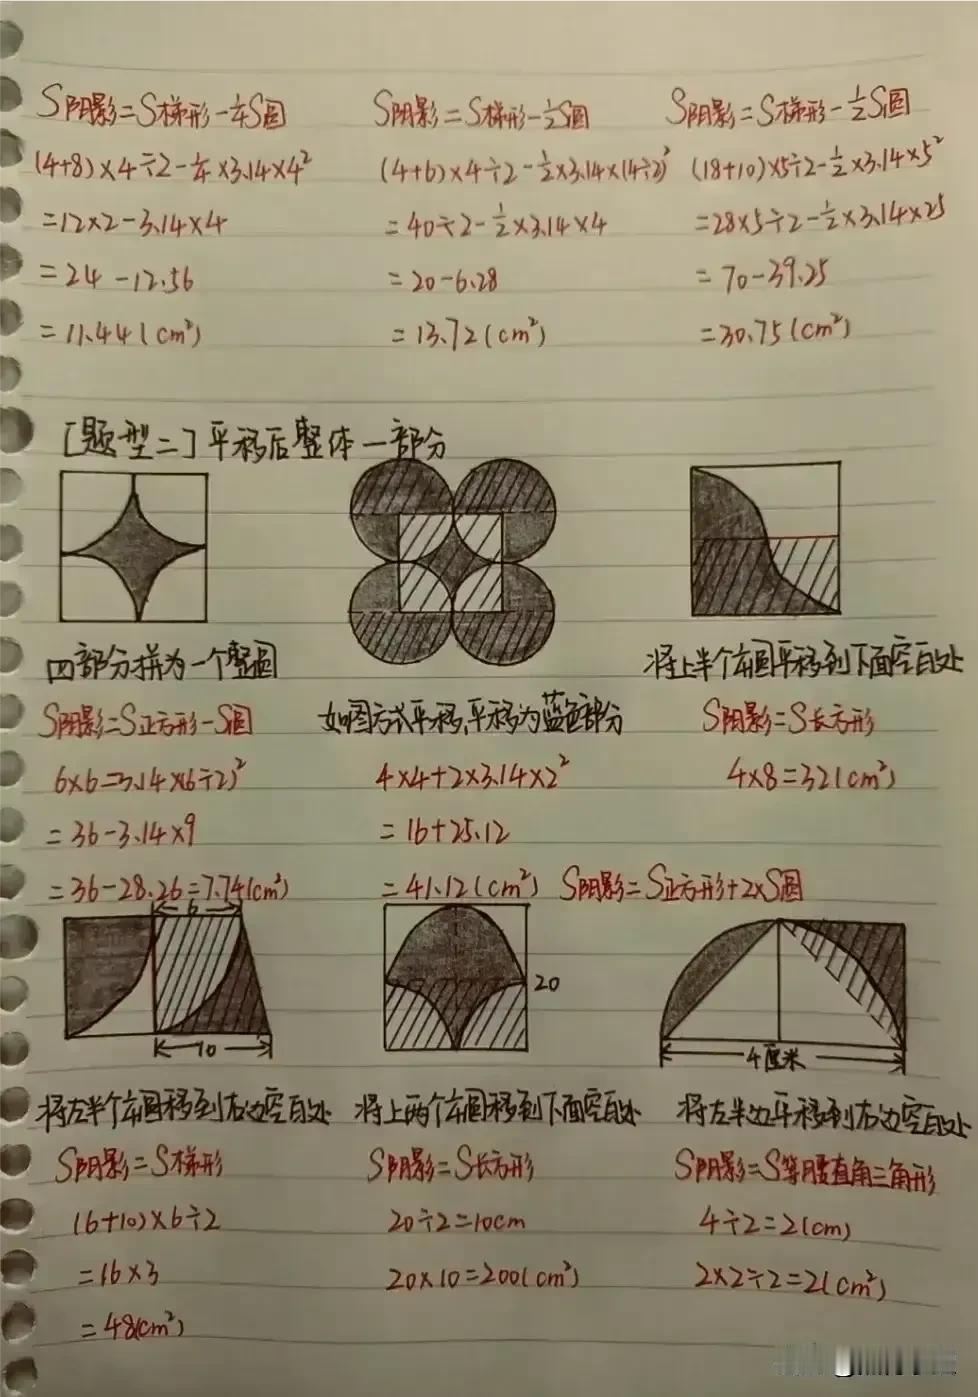 S阴影=S梯形-¼S圆
(4+8)×4÷2-¼×3.14×4²
=12×2-3.14×4
=24-12.56
=11.44(cm²)
S阴影=S梯形-½S圆
(4+6)×4÷2-½×3.14×(4÷2)²
=40÷2-½×3.14×4
=20-6.28
=13.72(cm²)
S阴影=S梯形-½S圆
(18+10)×5÷2-½×3.14×5²
=28×5÷2-½×3.14×25
=70-39.25
=30.75(cm²)
[题型二]平移后整体一部分
四部分拼为一个整圆
S阴影=S正方形-S圆
6×6=3.14×(6÷2)²
=36-3.14×9
=36-28.26=7.74(cm²)
如图方式平移,平移为蓝色部分
4×4+2×3.14×2²
=16+25.12
=41.12(cm²) S阴影=S正方形+2×S圆
将上半个本圆平移到下面空白处
S阴影=S长方形
4×8=32(cm²)
6
10
将左半个本圆移到右边空白处
S阴影=S梯形
(6+10)×6÷2
=16×3
=48(cm²)
20
将上两个本圆移到下面空白处
S阴影=S长方形
20÷2=10cm
20×10=200(cm²)
4厘米
将左半边平移到右边空白处
S阴影=S等腰直角三角形
4÷2=2(cm)
2×2÷2=2(cm²)